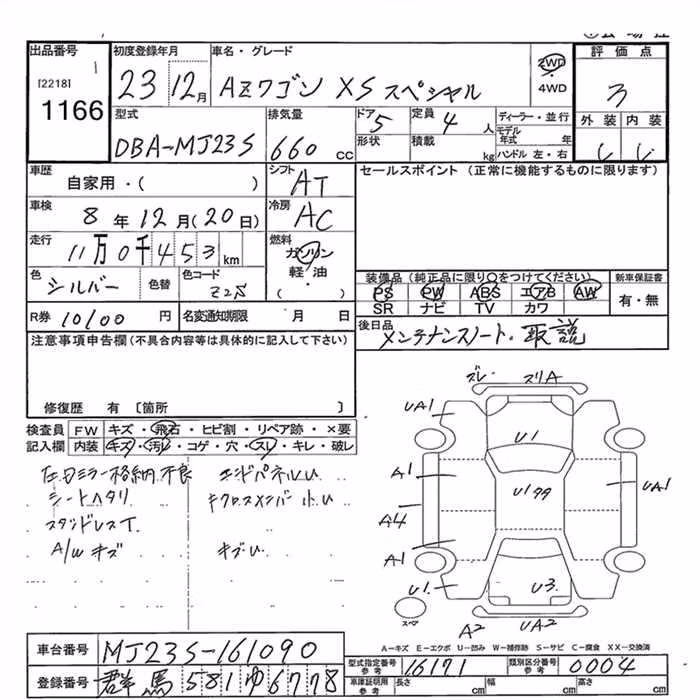 出品番号
[2218]
1166
初度登録年月
23 12月
車名・グレード
AZワゴン XS スペシャル
2WD
4WD
評価点
3
外装 内装
型式
DBA-MJ23S
排気量
660 cc
ドア
5
定員
4 人
形状
積載
kg
ディーラー・並行
モデル年式 年
ハンドル 左・右
車歴
自家用・( )
シフト
AT
セールスポイント (正常に機能するものに限ります)
車検
8年 12月(20日)
冷房
AC
走行
11万0千453 km
燃料
ガソリン
軽・油
( )
色
シルバー
色替
色コード
Z2S
装備品 (純正品に限り○をつけてください)
PS PW ABS エアB AW
SR ナビ TV カワ
新車保証書
有・無
R券 10100 円
名変通知期限 月 日
後日品
メンテナンスノート・取説
注意事項申告欄(不具合内容等は具体的に記入して下さい)
修復歴 有 〔箇所 〕
検査員記入欄
FW キズ・飛石・ヒビ割・リペア跡・×要
内装 キズ・汚レ・コゲ・穴・スレ・キレ・破レ
左.Dミラー格納不良
シートヘタリ
スタッドレスT.
A/W キズ
エンドパネルU
キクロスメンバー小U
キズ・U.
ズレ スリA
UA1
U1
A1
U1
UA1
A4
A1
U1.
U3.
スペア
A2 UA2
A-キズ E-エクボ U-凹み W-補修跡 S-サビ C-腐食 XX-交換済
車台番号
MJ23S-161090
登録番号
群馬581ゆ6778
型式指定番号 参考
16171
類別区分番号 参考
0004
車庫証明用 参考
長さ cm 幅 cm 高さ cm